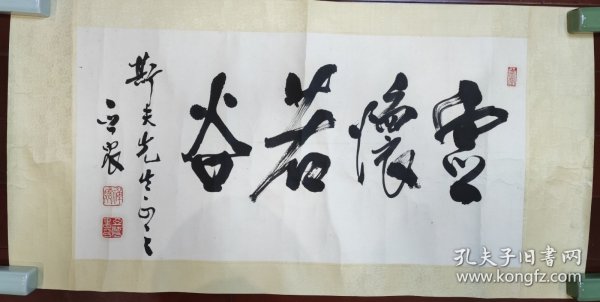 虚懷若谷
斯夫先生正之
孔夫子旧书网
www.kongfz.com